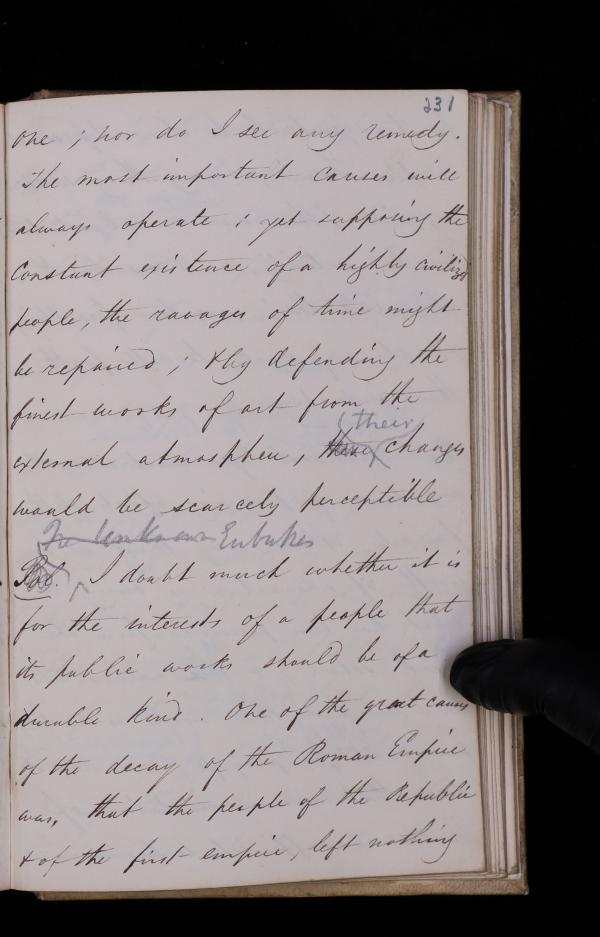 231
one ; nor do I see any remedy.
The most important causes will
always operate ; yet supposing the
Constant existence of a highly civilizd
people, the ravages of time might
be repaired ; & by defending the
finest works of art from the
their
external atmosphere, these changes
would be scarcely perceptible
The Unknown Eubathes
I doubt much whether it is
for the interests of a people that
its public works should be of a
durable kind. One of the great causes
of the decay of the Roman Empire
was, that the people of the Republic
& of the first empire, left nothing